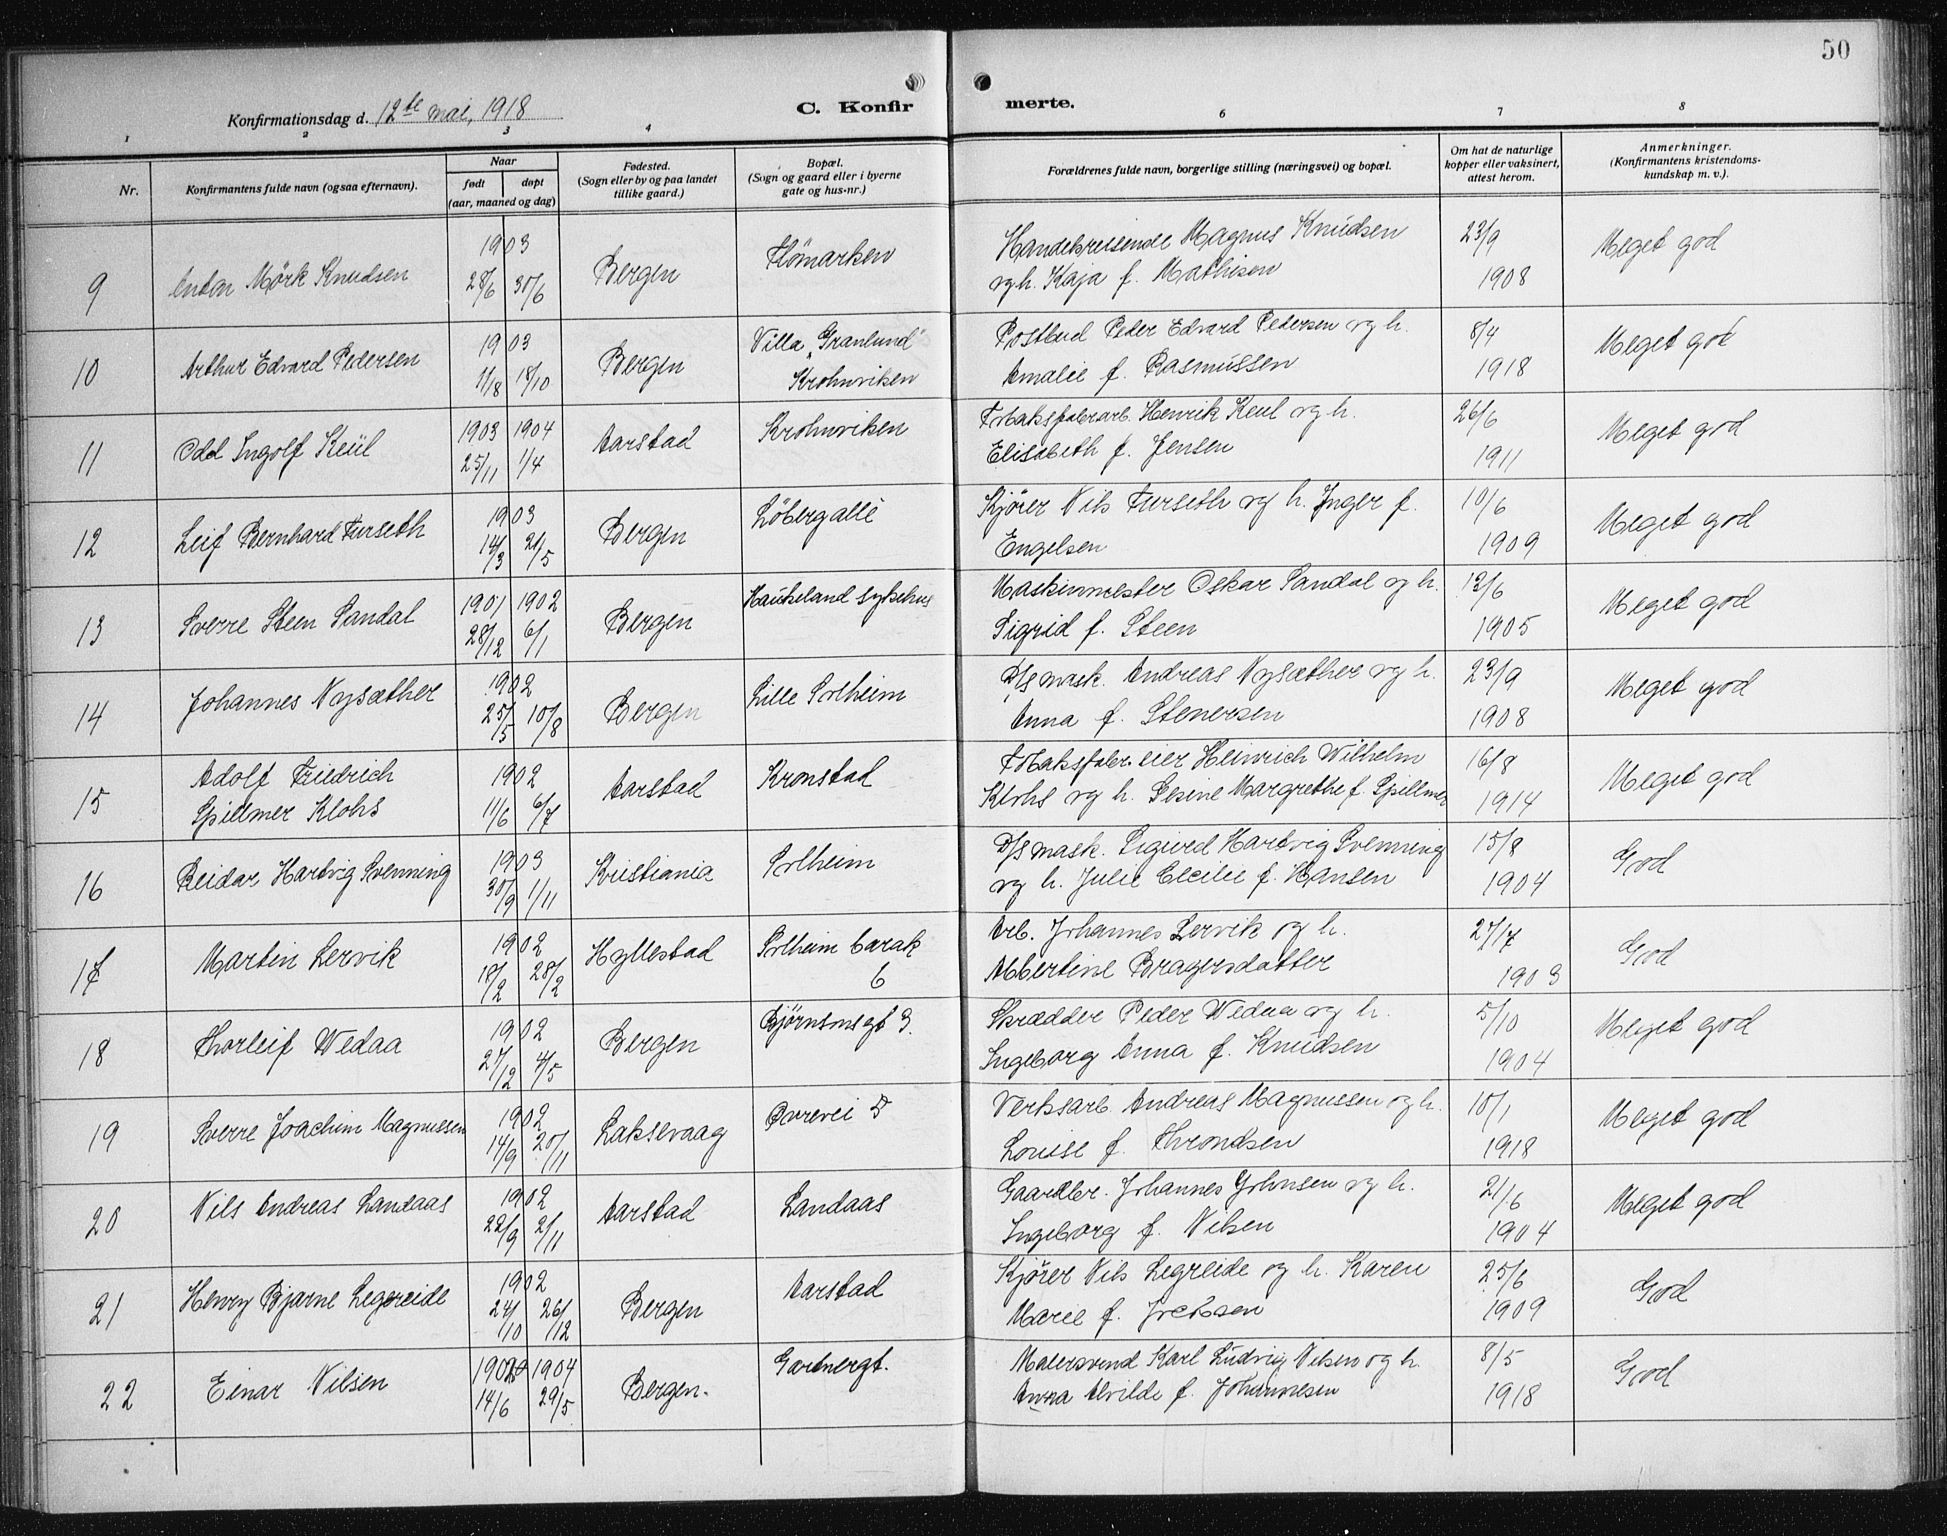 50
Konfirmationsdag d. 12te mai, 1918
C. Konfir
merte.
1 2 3 4 6 7 8
Nr.
Konfirmantens fulde navn (ogsaa efternavn).
Naar
født døpt
(aar, maaned og dag)
Fødested.
(Sogn eller by og paa landet
tillike gaard.)
Bopæl.
(Sogn og gaard eller i byerne
gate og hus-nr.)
Forældrenes fulde navn, borgerlige stilling (næringsvei) og bopæl.
Om hat de naturlige
kopper eller vaksinert,
attest herom.
Anmerkninger.
(Konfirmantens kristendoms-
kundskap m. v.).
1903 Flømarken Handelsreisende Magnus Knudsen 23/9
9 Anton Mørk Knudsen 28/6 30/6 Bergen og h. Kaja f. Mathisen 1908 Meget god
1903 Villa „Granlund" Postbud Peder Edvard Pedersen og h. 8/4
10 Arthur Edvard Pedersen 1/8 18/10 Bergen Krohnviken Amalie f. Rasmussen 1918 Meget god
1903 1904 Krohnviken Tobaksfabrarb. Henrik Keul og h. 26/6
11 Odd Ingolf Keül 25/11 1/4 Aarstad Elisabeth f. Jensen 1911 Meget god
1903 Løbergallé Kjører Nils Furseth og h. Inger f. 10/6
12 Leif Bernhard Furseth 14/3 21/5 Bergen Engelsen 1909 Meget god
1901 1902 Haukeland sykehus Maskinmester Oskar Sandal og h. 12/6
13 Sverre Steen Sandal 28/12 6/1 Bergen Sigrid f. Steen 1905 Meget god
1902 Lille Solheim D/s mask. Andreas Nysæther og h. 23/9
14 Johannes Nysæther 25/5 10/8 Bergen Anna f. Stenersen 1908 Meget god
Adolf Friedrich 1902 Kronstad Tobaksfabr. eier Heinrich Wilhelm 16/8
15 Spillmer Klohs 11/6 6/7 Aarstad Klohs og h. Gesine Margrethe f. Spillmer 1914 Meget god
1903 Solheim D/s mask. Sigurd Hartvig Svenning 15/8
16 Reidar Hartvig Svenning 30/9 1/11 Kristiania og h. Julie Cecilie f. Hansen 1904 God
1902 Solheim barak Arb. Johannes Lervik og h. 27/7
17 Martin Lervik 18/2 28/2 Hyllestad 6 Albertine Bragersdatter 1903 God
1902 Bjørnsonsgt 3. Skrædder Peder Wedaa og h. 5/10
18 Thorleif Wedaa 27/12 4/5 Bergen Ingeborg Anna f. Knudsen 1904 Meget god
1902 Ovrevei 5 Verksarb. Andreas Magnussen og h. 10/1
19 Sverre Joachim Magnussen 14/9 20/11 Laksevaag Louise f. Throndsen 1918 Meget god
1902 Landaas Gaardbr. Johannes Johnsen og h. 21/6
20 Nils Andreas Landaas 22/9 2/11 Aarstad Ingeborg f. Nilsen 1904 Meget god
1902 Aarstad Kjører Nils Legreide og h. Karen 25/6
21 Henry Bjarne Legreide 24/10 26/12 Bergen Marie f. 1909 God
1904 Gartnergt. Malersvend Karl Ludvig Nilsen og h. 8/5
22 Einar Nilsen 14/6 29/5 Bergen. Anna Alvilde f. Johannesen 1918 God